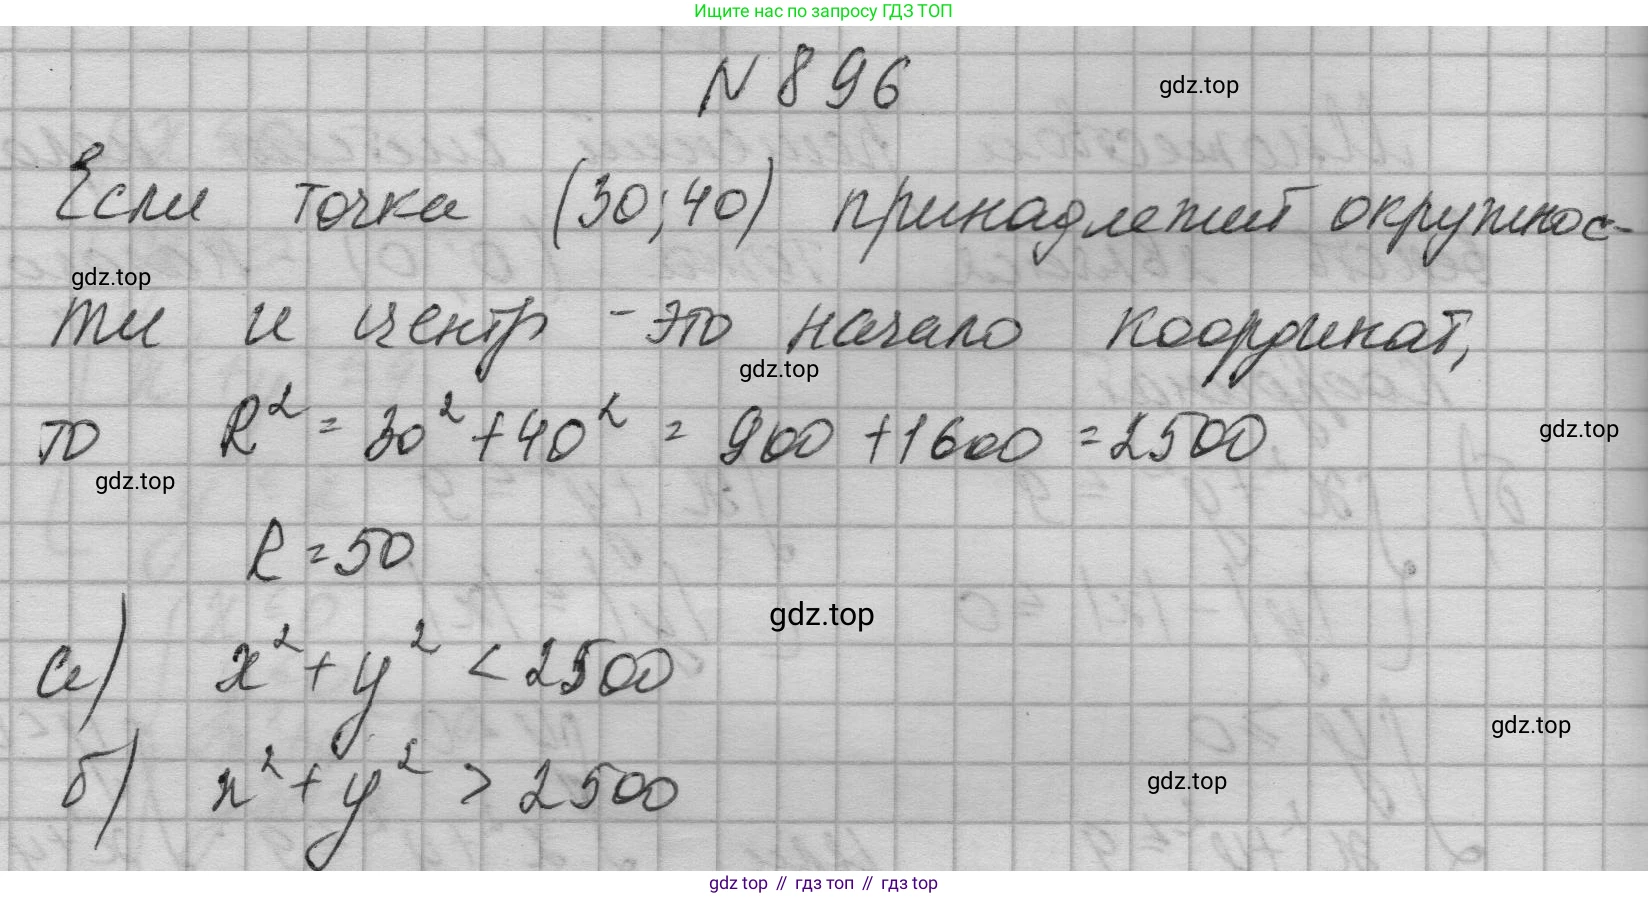 Ищите нас по запросу ГДЗ ТОП
N 896
gdz.top
Если точка (30;40) принадлежит окружнос-
gdz.top
ти и центр - это начало координат,
gdz.top
то R² = 30² + 40² = 900 + 1600 = 2500
gdz.top
gdz.top
R = 50
gdz.top
а) x² + y² < 2500
gdz.top
б) x² + y² > 2500
gdz.top
gdz top // гдз топ // гдз top